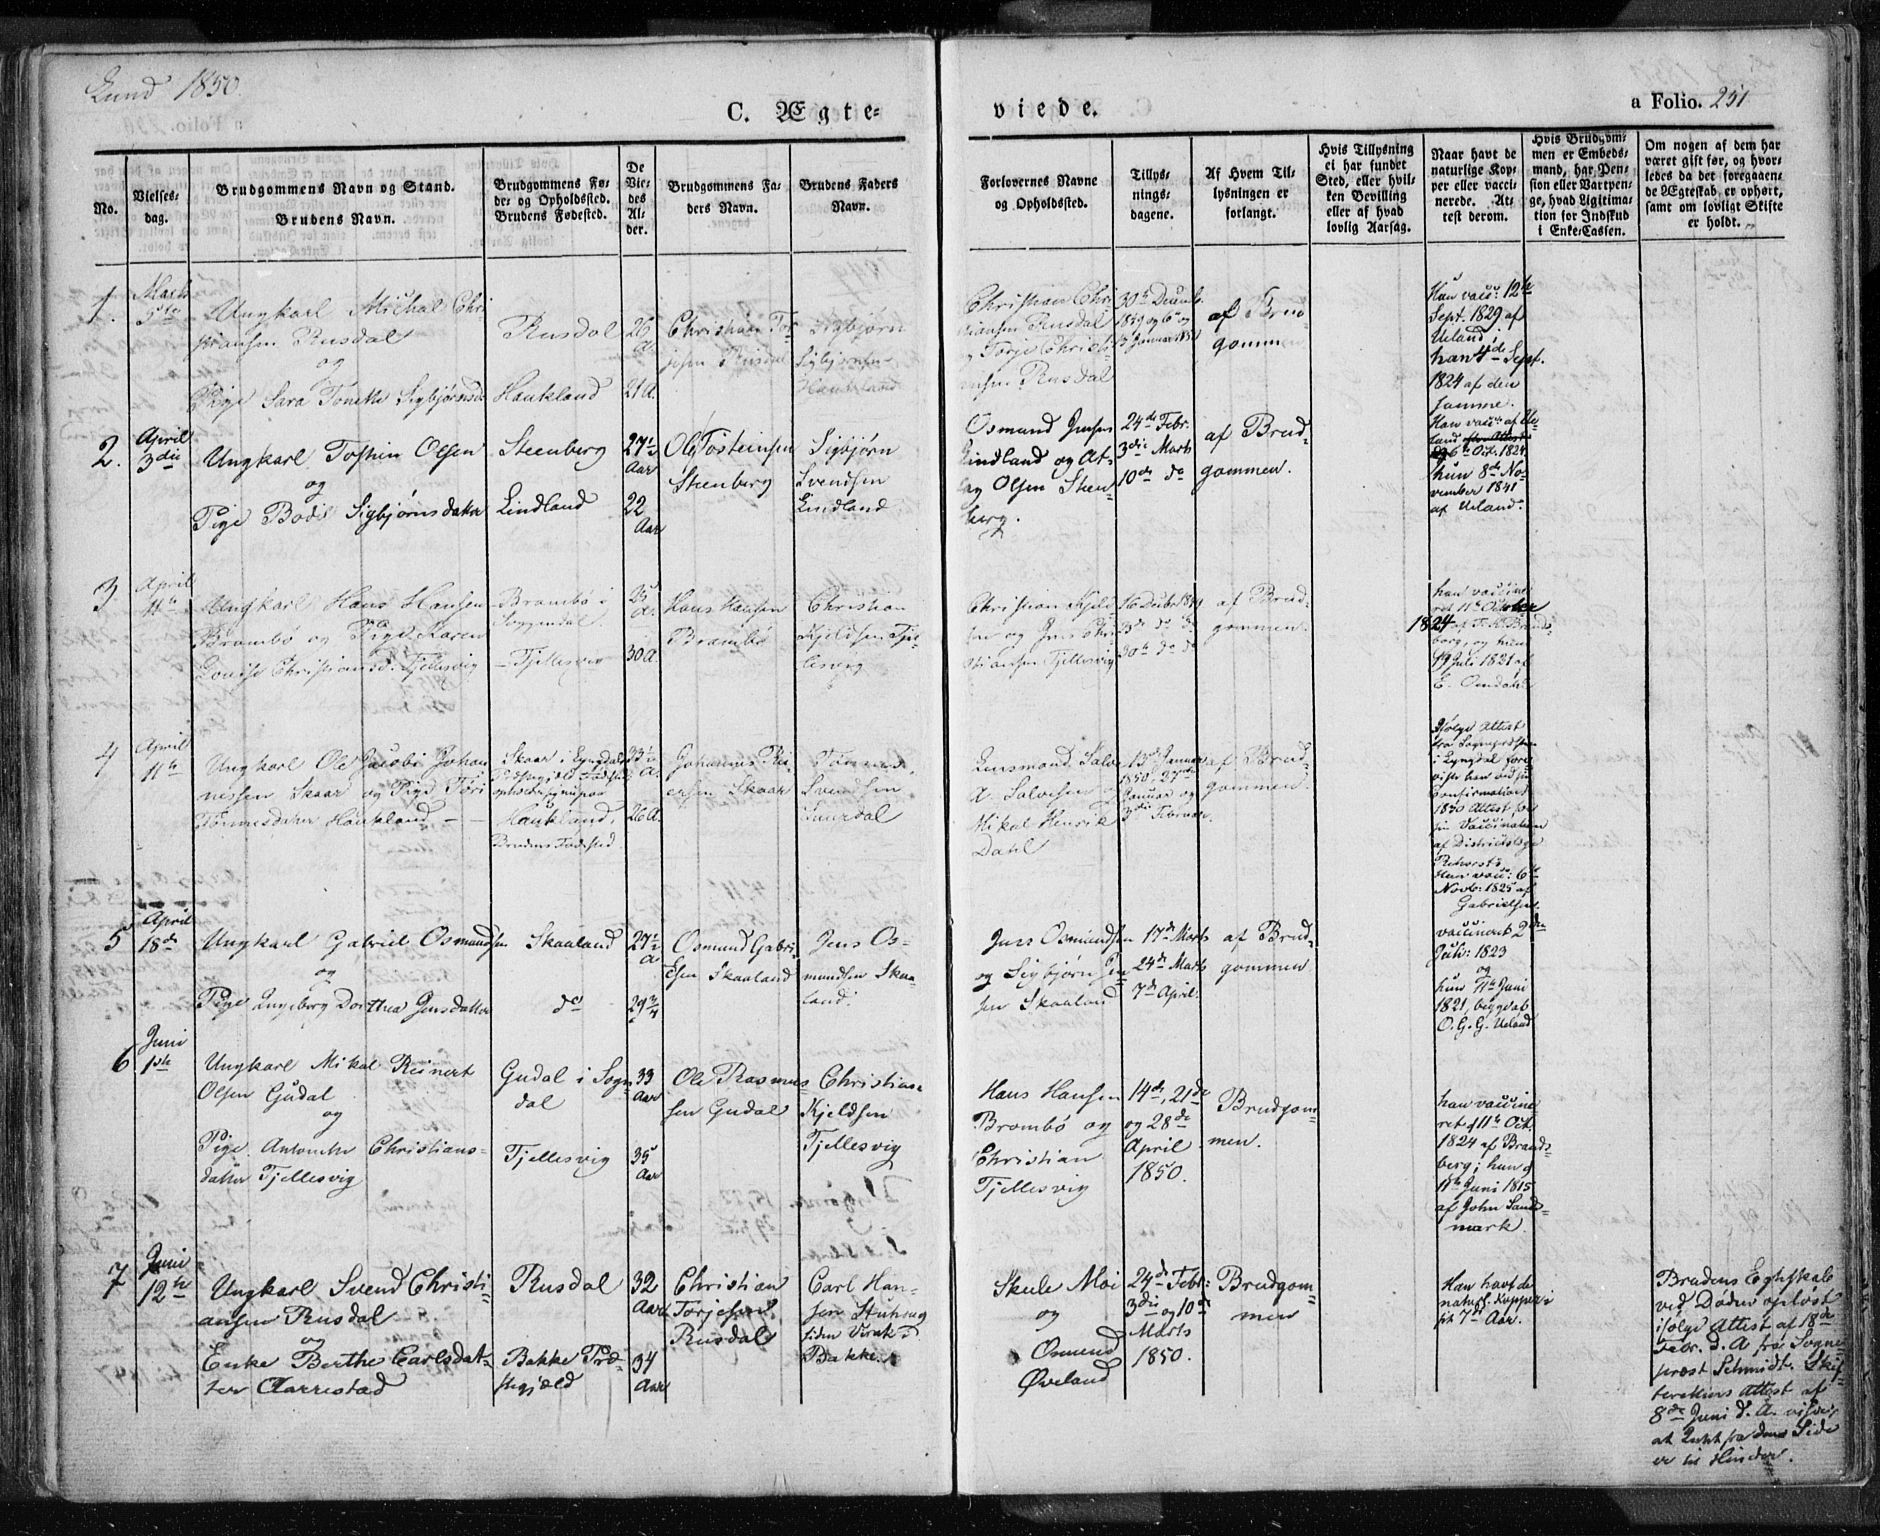 Lund 1850.
C. Ægte-
viede.
a Folio. 251
No.
Vielses-
dag.
Brudgommens Navn og Stand.
Brudens Navn.
Brudgommens Fø-
de- og Opholdssted.
Brudens Fødested.
De
Vie-
des
Al-
der.
Brudgommens Fa-
ders Navn.
Brudens Faders
Navn.
Forlovernes Navne
og Opholdssted.
Tillys-
nings-
dagene.
Af Hvem Til-
lysningen er
forlangt.
Hvis Tillysning
ei har fundet
Sted, eller hvil-
ken Bevilling
eller af hvad
lovlig Aarsag.
Naar havt de
naturlige Kop-
per eller vacci-
nerede. At-
test derom.
Hvis Brudgom-
men er Embeds-
mand, har Pen-
sion eller Vartpen-
ge, hvad Ligitima-
tion for Indskud
i Enke-Cassen.
Om nogen af dem har
været gift før, og hvor-
ledes da det foregaaen-
de Ægteskab er ophørt,
samt om lovligt Skifte
er holdt.
1.
Marts
5te
Ungkarl Michal Chri
stiansen Rusdal
og
Pige Sara Tonette Sigbjørnsd.
Rusdal
Haukland
26
A.
21 A.
Christian Tor
jesen Rusdal
Sigbjørn
Sigbjørnsen
Haukland
Christian Chri
stiansen Rusdal
og Torje Christi
ansen Rusdal
30te Decemb.
1849 og 6te og
13 Januar 1850
af Brud
gommen
Han vacc: 12te
Sept. 1829 af
Ueland
han 4de Sept.
1824 af den
samme.
2.
April
3die
Ungkarl Tostein Olsen
og
Pige Bodil Sigbjørnsdatter
Steenberg
Lindland
27½
Aar
22
Aar
Ole Tosteinsen
Steenberg
Sigbjørn
Svendsen
Lindland
Osmund Jensen
Lindland og At-
lag Olsen Steen-
berg.
24de Febr.
3die Marts
10de do
af Brud-
gommen.
Han vacc: af Ue-
land
6te Oct. 1824
hun 8de No-
vember 1841
af Ueland.
3
April
11te
Ungkarl Hans Hansen
Brambø og Pige Karen
Lovise Christiansd. Fjellesvig
Brambø i
Soggendal.
- Fjellesvig
25
A.
30 A.
Hans Hansen
Brambø
Christian
Kjeldsen Fjel-
lesvig
Christian Kjeld
sen og Jens Chri
stiansen Fjellesvig
16 Decbr 1849
23de do do
30te do do
af Brud-
gommen.
han vaccine
ret 11te October
1824 af Brands-
berg, og hun
19 Juli 1821 af
E. Omdahl
4
April
11te
Ungkarl Ole Jacobi Johan
nessen Skaar og Pige Tori
Tønnesdatter Haukland - -
Skaar i Lyngdals
Haukland.
Brudens Fødested
33½
A.
26 A.
Johannes Rei-
ersen Skaar
Tønnes
Svendsen
A. Salvesen og
Mikal Henrik
Dahl
13de Januar
1850, 27de
Januar og
3die Februar.
af Brud-
gommen.
Ifølge Attest
fra Sognepræsten
i Lyngdal
Confirmationen
1830 Attest for
sin Vaccination
af Districtslæge
Hun vacc: 6te
Novb: 1825 af
Gabrielsen.
5
April
18de
Ungkarl Gabriel Osmundsen
og
Pige Ingeborg Dorthea Jensdatter
Skaaland
do
27½
A
29¾
Osmund Gabri-
elsen Skaaland
Jens Os-
mundsen Skaa-
land.
Jens Osmundsen
og Sigbjørn Jen
sen Skaaland
17de Marts
24de Marts
7de April.
af Brud-
gommen
vaccineret 2den
Juli: 1823
og
hun 11te Juni
1821, begge af
O. G. G. Ueland
6
Juni
1ste
Ungkarl Mikal Reinert
Olsen Gudal
og
Pige Antonette Christians-
datter Fjellesvig
Gudal i Sogn
dal
Fjellesvig
33
Aar
35
Aar
Ole Rasmus-
sen Gudal
Christian
Kjeldsen
Fjellesvig
Hans Hansen
Brombø og
Christian
Fjellesvig
14de, 21de
og 28de
April
1850.
Brudgom-
men.
han vaccine
ret d 11te Oct.
1824 af Brands-
berg; hun d
11te Juni 1815
af John Sand-
mark.
7
Juni
12te
Ungkarl Svend Christi-
ansen Rusdal
og
Enke Berthe Carlsdat-
ter Aarrestad
Rusdal
Bakke Præ-
stegjæld
32
Aar
34
Aar
Christian
Torjesen
Rusdal
Carl Han-
sen
Bakke.
Skule Moi
og
Osmund
Øveland
24de Febr:
3die og 10de
Marts
1850.
Brudgom-
men
Han havt de
naturl. Kopper i
sit 7de Aar.
Brudens Egteskab
ved Døden opløst
ifølge Attest af 18de
Febr. d. A fra Sogne-
præst Schmidt. Skif-
terettens Attest af
8de Juni d. A. viser,
at Intet fra denne Side
er til Hinder.